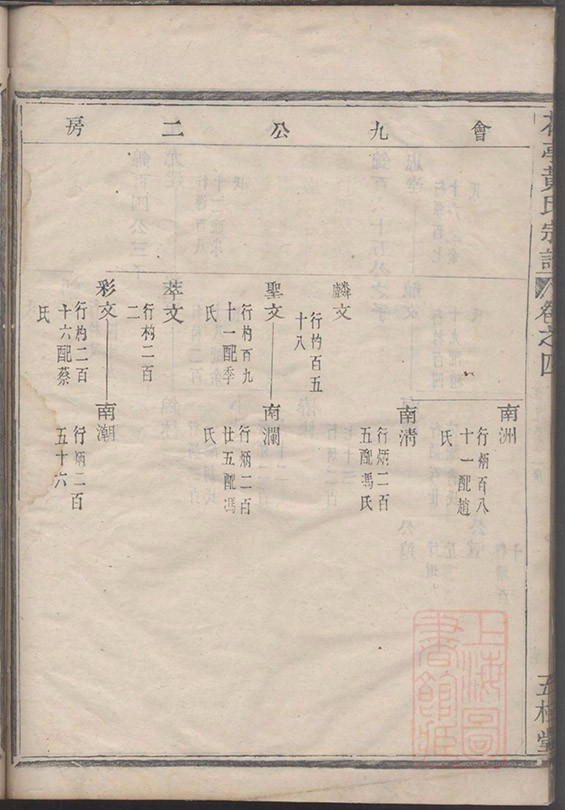 黃氏宗譜
卷之四
會九公二房
南洲
行炳百八
十一配趙
氏
南清
行炳二百
五配馮氏
麟文
行杓百五
十八
聖文
行杓百九
十一配季
氏
南瀾
行炳二百
廿五配馮
氏
萃文
行杓二百
二
彩文
行杓二百
十六配蔡
氏
南潮
行炳二百
五十六
上海圖
書館藏